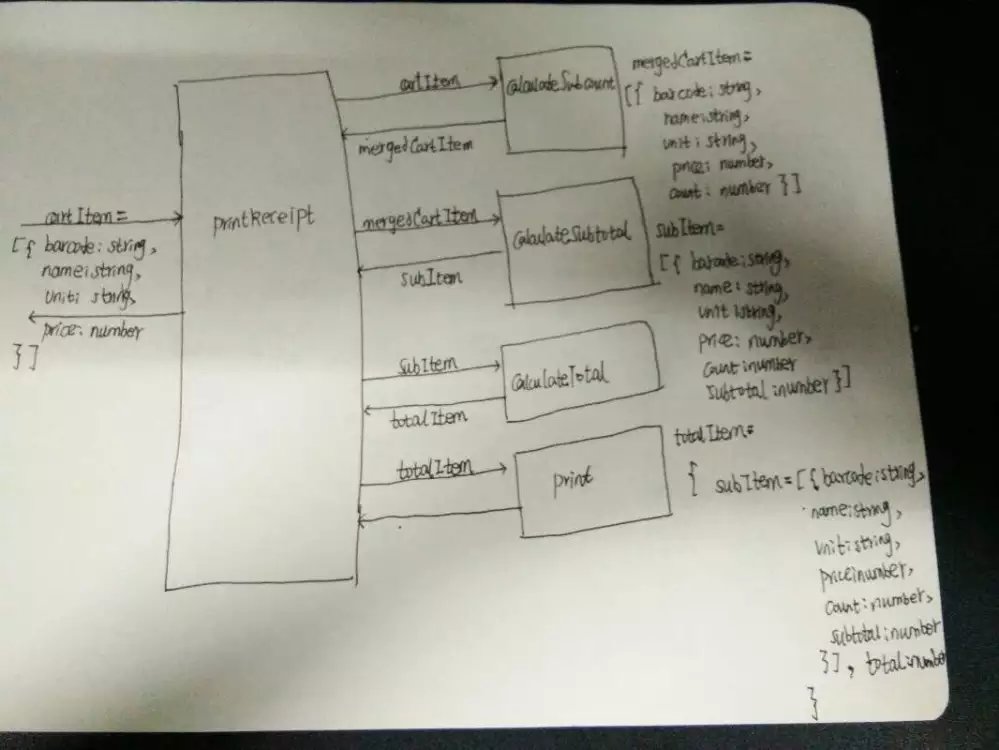 cartItem=
[{ barcode: string,
name: string,
unit: string,
price: number
}]
printReceipt
cartItem
mergedCartItem
calculateSubcount
mergedCartItem=
[{ barcode: string,
name: string,
unit: string,
price: number,
count: number }]
mergedCartItem
subItem
calculateSubtotal
subItem=
[{ barcode: string,
name: string,
unit: string,
price: number,
count: number
subtotal: number }]
subItem
totalItem
calculateTotal
totalItem
print
totalItem=
{ subItem=[{ barcode: string,
name: string,
unit: string,
price: number,
count: number,
subtotal: number
}], total: number
}